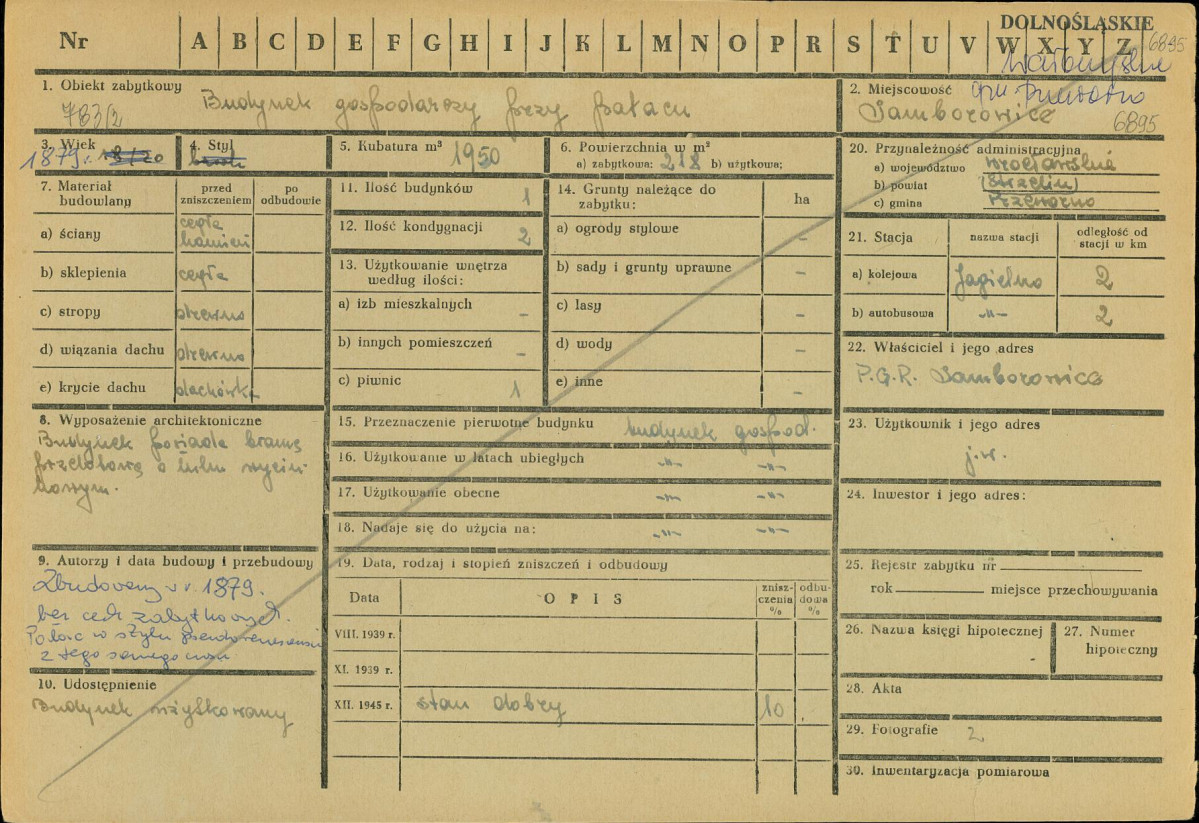 DOLNOŚLĄSKIE
Nr A B C D E F G H I J K L M N O P R S T U V W X Y Z
6895
1. Obiekt zabytkowy
Budynek gospodarczy przy pałacu
783/2
2. Miejscowość gm. Przeworno
Samborowice
6895
3. Wiek
1879r.
4. Styl
5. Kubatura m³ 1950
6. Powierzchnia w m²
a) zabytkowa: 218 b) użytkowa:
20. Przynależność administracyjna
a) województwo wrocławskie
b) powiat (Strzelin)
c) gmina Przeworno
7. Materiał budowlany
przed zniszczeniem
po odbudowie
a) ściany cegła kamień
b) sklepienia cegła
c) stropy drewno
d) wiązania dachu drewno
e) krycie dachu dachówka
11. Ilość budynków 1
12. Ilość kondygnacji 2
13. Użytkowanie wnętrza według ilości:
a) izb mieszkalnych -
b) innych pomieszczeń -
c) piwnic 1
14. Grunty należące do zabytku: ha
a) ogrody stylowe -
b) sady i grunty uprawne -
c) lasy -
d) wody -
e) inne -
21. Stacja
nazwa stacji
odległość od stacji w km
a) kolejowa Jagielno 2
b) autobusowa -"- 2
22. Właściciel i jego adres
P.G.R. Samborowice
23. Użytkownik i jego adres
j.w.
24. Inwestor i jego adres:
8. Wyposażenie architektoniczne
Budynek posiada bramę
przelotową o łuku wycin-
kowym.
15. Przeznaczenie pierwotne budynku budynek gospod.
16. Użytkowanie w latach ubiegłych -"- -"-
17. Użytkowanie obecne -"- -"-
18. Nadaje się do użycia na: -"- -"-
9. Autorzy i data budowy i przebudowy
Zbudowany w r. 1879.
bez cech zabytkowych.
Pałac w stylu pseudorenesansu
z tego samego czasu
10. Udostępnienie
Budynek użytkowany
19. Data, rodzaj i stopień zniszczeń i odbudowy
Data
OPIS
znisz-czenia %
odbu-dowa %
VIII. 1939 r.
XI. 1939 r.
XII. 1945 r. stan dobry 10
25. Rejestr zabytku nr
rok miejsce przechowywania
26. Nazwa księgi hipotecznej
-
27. Numer hipoteczny
28. Akta
29. Fotografie 2
30. Inwentaryzacja pomiarowa